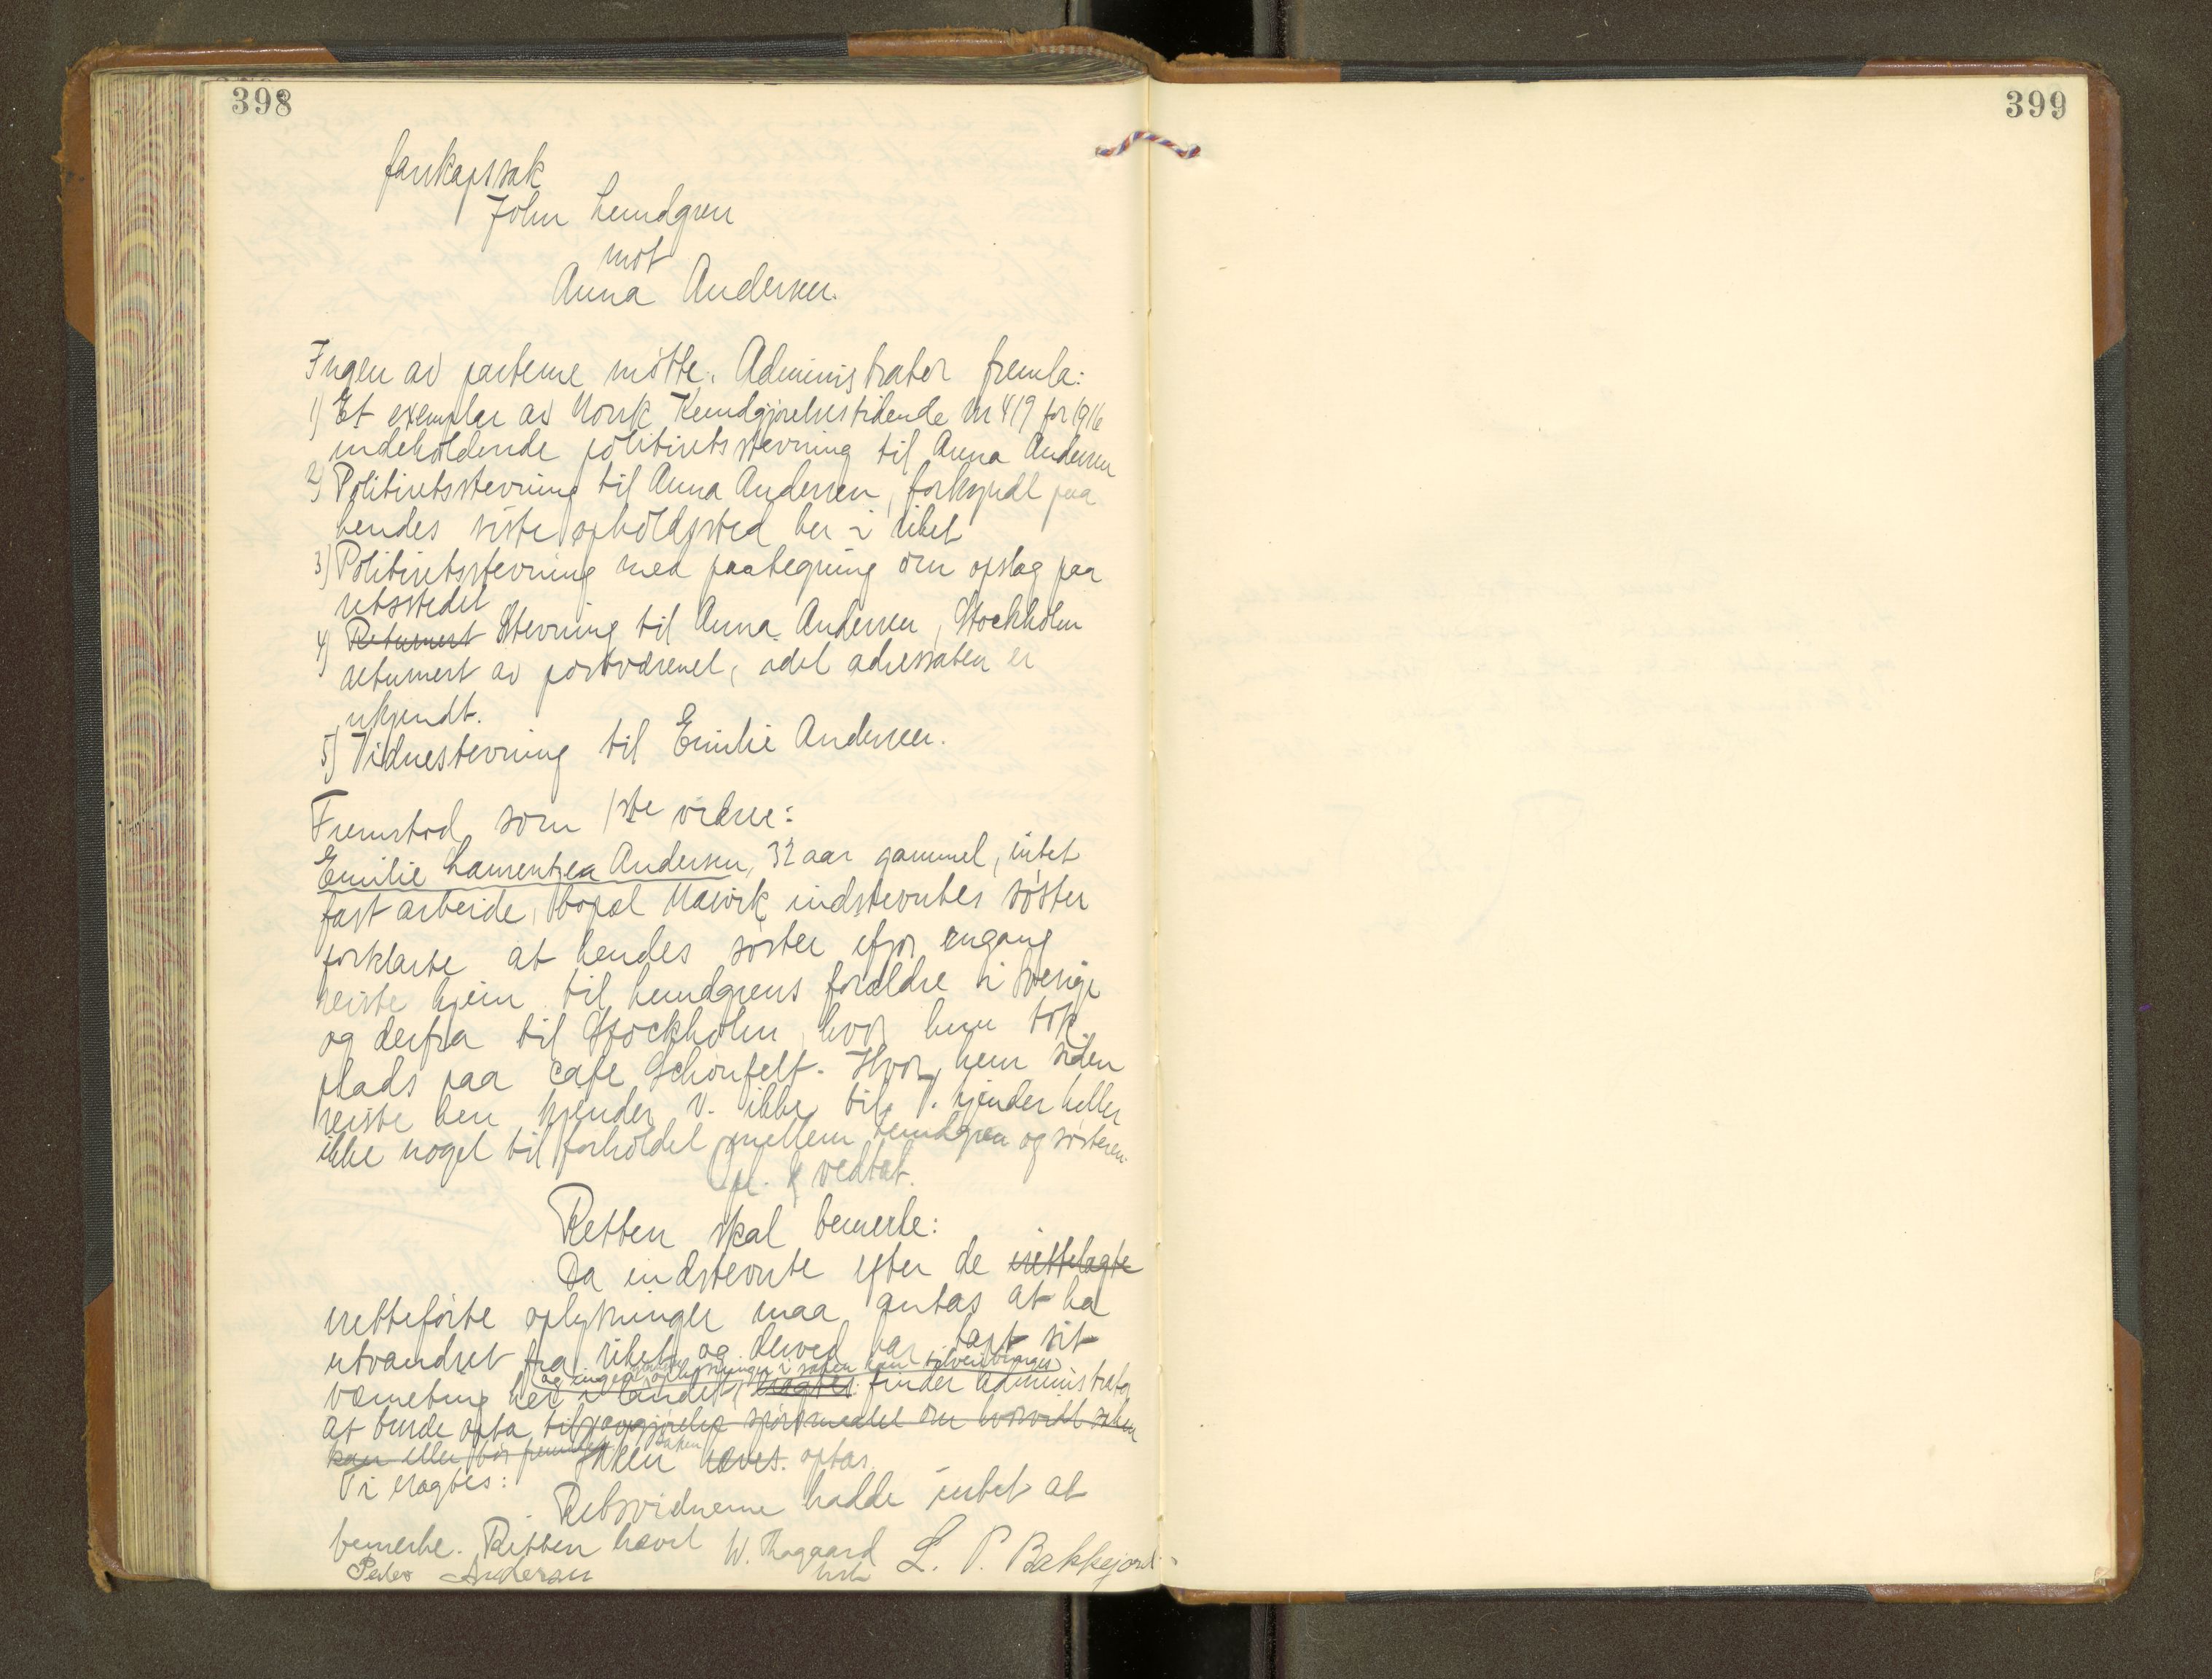 398
farskapssak
John Lundgren
mot
Anna Andersen.
Ingen av parterne møtte. Administrator fremla:
1) Et exemplar av Norsk Kundgjørelsestidende Nr 419 for 1916
indeholdende politiretsstevning til Anna Andersen
2) Politiretsstevning til Anna Andersen, forkyndt paa
hendes siste opholdssted her i riket
3) Politiretsstevning med paategning om opslag paa
retsstedet
4) Returnert Stevning til Anna Andersen, Stockholm
returnert av postvæsenet, idet adressaten er
ukjendt.
5) Vidnestevning til Emilie Andersen.
Fremstod som 1ste vidne:
Emilie Laurentzea Andersen, 32 aar gammel, intet
fast arbeide, bopæl Narvik indstevntes søster
forklarte at hendes søster ifjor engang
reiste hjem til Lundgrens forældre i Sverige
og derfra til Stockholm, hvor hun tok
plads paa cafe Schönfelt. Hvor hun siden
reiste hen kjender V. ikke til. V. kjender heller
ikke noget til forholdet mellem Lundgren og søsteren.
Opl. & vedtat.
Retten skal bemerke:
Da indstevnte efter de irettelagte
retteførte oplysninger maa antas at ha
utvandret fra riket og derved har tapt sit
og ingen oplysninger i saken kan tilveiebringes
verneting her i landet, eragtes finder administrator
at burde opta til avgjørelse spørsmaalet om hvorvidt saken
kan eller bør fremmes saken
Saken hæves. optas.
Ti eragtes:
Retsvidnerne hadde intet at
bemerke. Retten hævet W. Thogaard L. P. Bakkejord
Peder Andersen
399